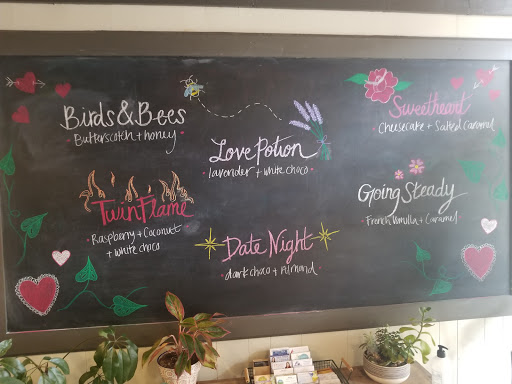 Birds & Bees
Butterscotch + honey
Love Potion
lavender + white choco
Sweetheart
Cheesecake + Salted Caramel
Twin Flame
Raspberry + Coconut
+ white choco
Date Night
dark choco + Almond
Going Steady
French Vanilla + Caramel